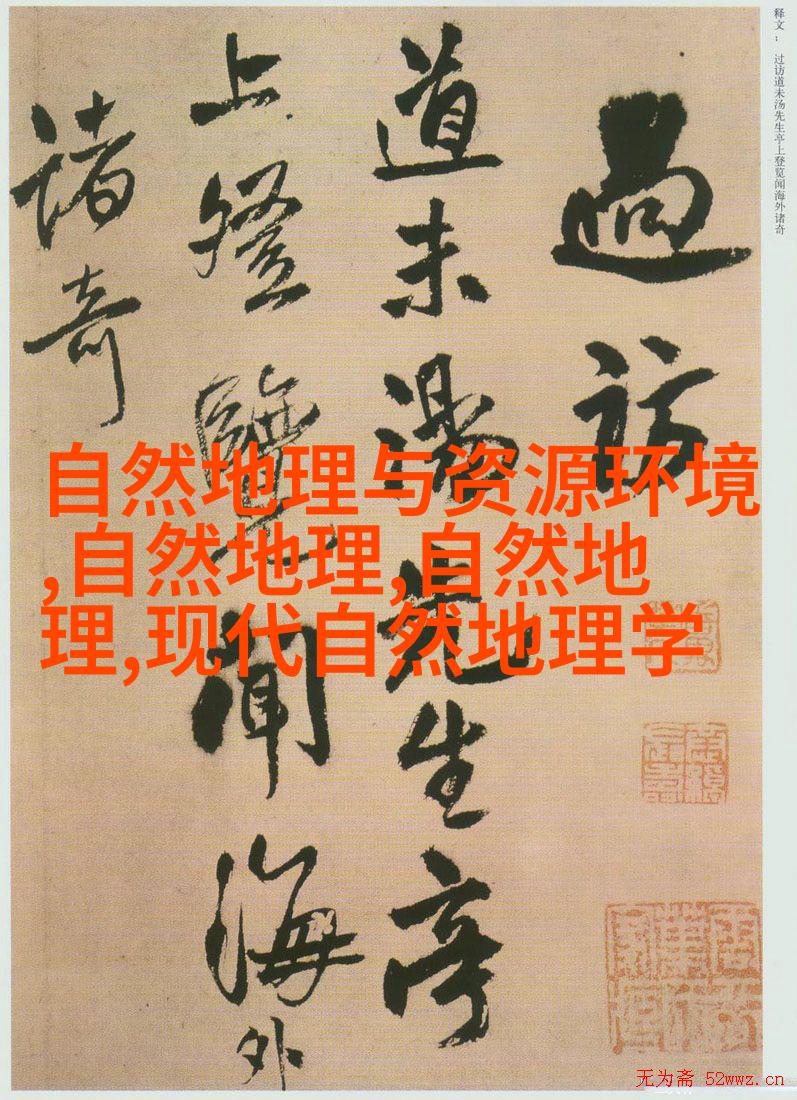 释文： 过访道未汤先生亭上登览闻海外诸奇
過訪
道未湯先生亭
上登覽聞海外
諸奇
自然地理与资源环境
,自然地理,自然地
理,现代自然地理学
无为斋 52wwz.cn